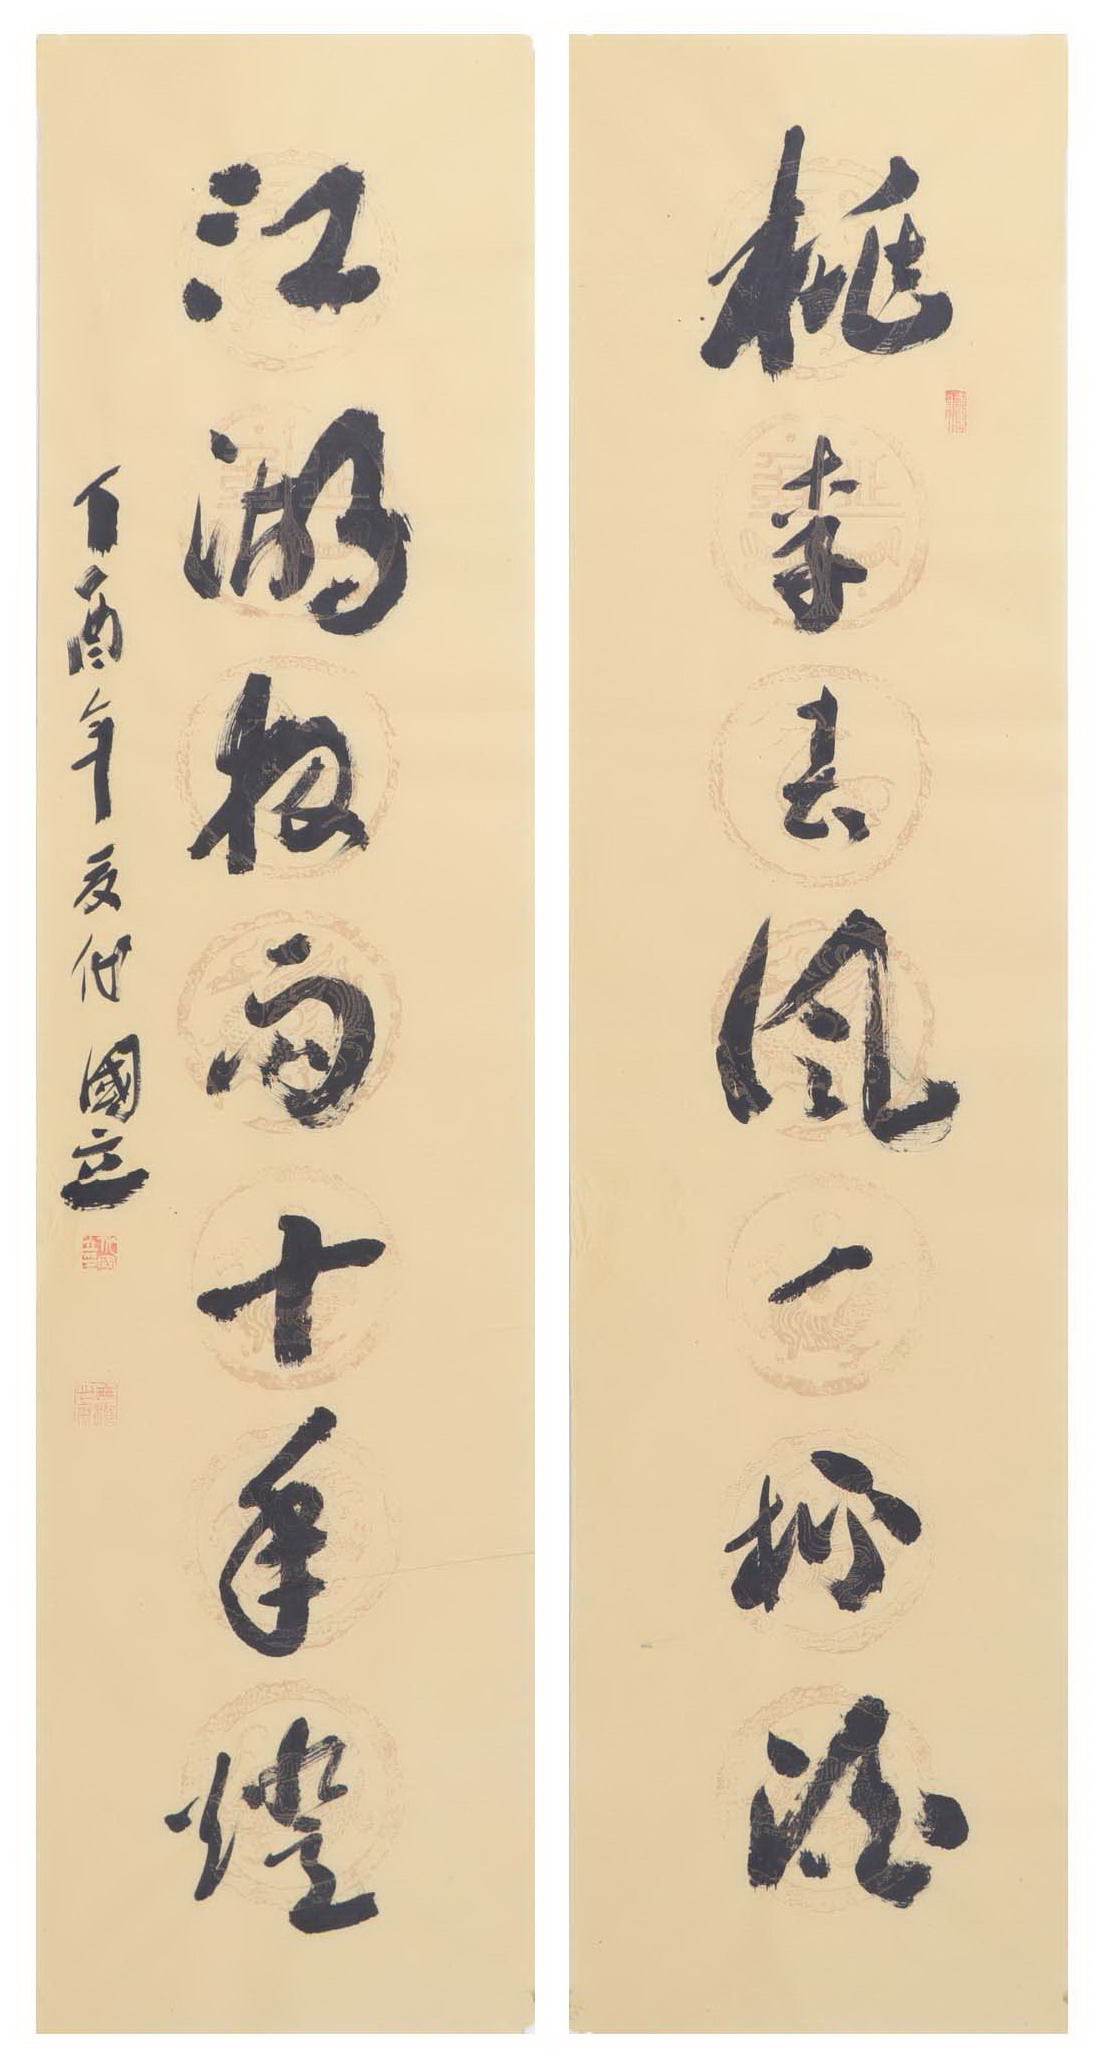 桃李春風一杯酒
江湖夜雨十年燈
丁酉年夏代國立